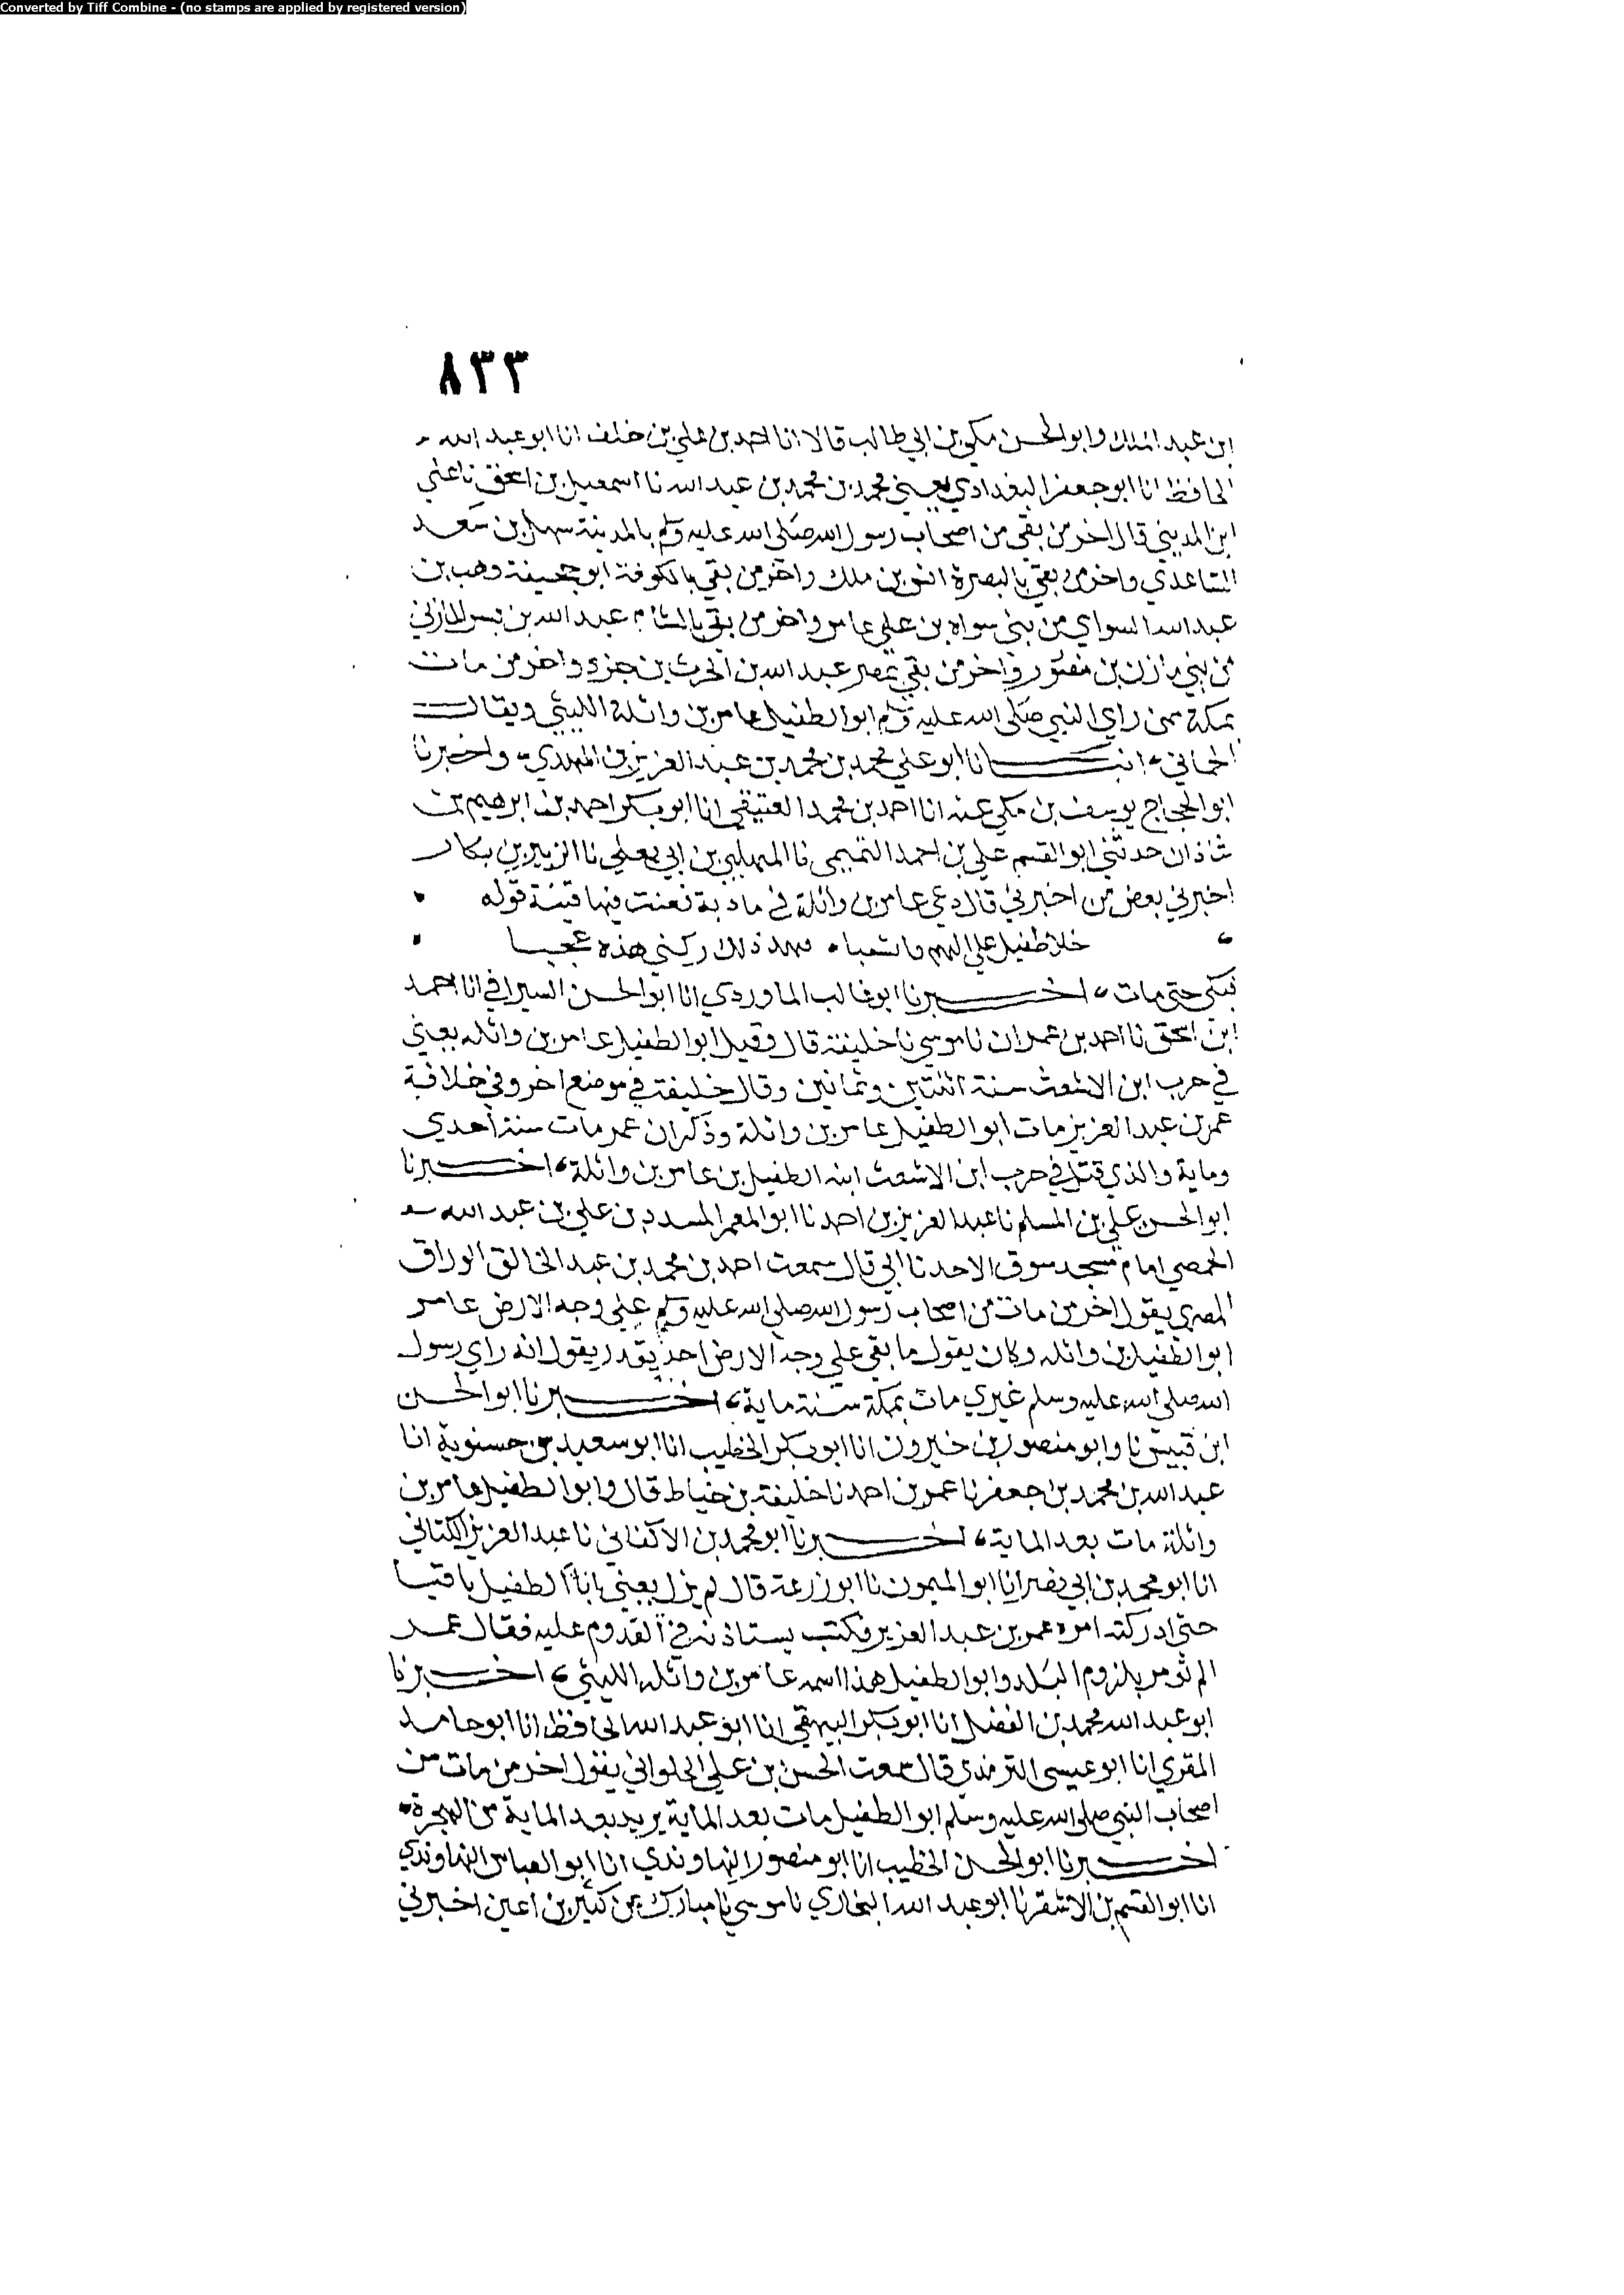 Converted by Tiff Combine - (no stamps are applied by registered version)
٨٣٣
ابن عبد الملك وابو الحسن مكي بن ابي طالب قالا انا احمد بن علي بن خلف انا ابو عبد الله
الحافظ انا ابو جعفر البغدادي يعني محمد بن محمد بن عبد الله نا اسمعيل بن اسحق نا علي
ابن المديني قال اخر من بقي من اصحاب رسول الله صلى الله عليه وسلم بالمدينة سهل بن سعد
الساعدي واخر من بقي بالبصرة انس بن ملك واخر من بقي بالكوفة ابو جحيفة وهب بن
عبد الله السواي من بني سواه بن علي عامر واخر من بقي بالشام عبد الله بن بسر المازني
من بني مازن بن منصور واخر من بقي بمصر عبد الله بن الحرث بن جزء واخر من مات
بمكة ممن راي النبي صلى الله عليه وسلم ابو الطفيل عامر بن واثلة الليثي ويقال
الحماني انبـــانا ابو علي محمد بن محمد بن عبد العزيز بن المهدي واخبرنا
ابو الحجاج يوسف بن مكي عنه انا احمد بن محمد العتيقي انا ابو بكر احمد بن ابرهيم بن
شاذان حدثني ابو القسم علي بن احمد التميمي نا المهلبي بن ابي يعلي نا الزبير بن بكار
اخبرني بعض من اخبرني قال دعي عامر بن واثلة في مادبة فغنت فيها قينة قوله
خلا طفيل علي الهم فانشعبا فهد ذلك ركني هذه عجبا
فبكى حتى مات اخـــبرنا ابو غالب الماوردي انا ابو الحسن السيرافي انا احمد
ابن اسحق نا احمد بن عمران نا موسي نا خليفة قال وقيل ابو الطفيل عامر بن واثله يعني
في حرب ابن الاشعث سنة اثنتين وثمانين وقال خليفة في موضع اخر وفي خلافة
عمر بن عبد العزيز مات ابو الطفيل عامر بن واثلة وذكر ان عمر مات سنة احدي
وماية والذي قتل في حرب ابن الاشعث ابنه الطفيل بن عامر بن واثلة اخـــبرنا
ابو الحسن علي بن المسلم نا عبد العزيز بن احمد نا ابو المعمر المسدد بن علي بن عبد الله
الحمصي امام مسجد سوق الاحد نا ابي قال سمعت احمد بن محمد بن عبد الخالق الوراق
المصري يقول اخر من مات من اصحاب رسول الله صلى الله عليه وسلم علي وجه الارض عامر
ابو الطفيل بن واثله وكان يقول ما بقي علي وجه الارض احد يقدر يقول انه راي رسول
الله صلى الله عليه وسلم غيري مات بمكة سنة ماية اخـــبرنا ابو الحسن
ابن قبيس نا وابو منصور بن خيرون انا ابو بكر الخطيب انا ابو سعيد بن حسنوية انا
عبد الله بن محمد بن جعفر نا عمر بن احمد نا خليفة بن خياط قال وابو الطفيل عامر بن
واثلة مات بعد الماية اخـــبرنا ابو محمد بن الاكفاني نا عبد العزيز الكتاني
انا ابو محمد بن ابي نصر انا ابو الميمون نا ابو زرعة قال لم يزل يعني ابا الطفيل باقيا
حتى ادركته امرة عمر بن عبد العزيز فكتب يستاذنه في القدوم عليه فقال عمر
الم تومر بلزوم البلد وابو الطفيل هذا اسمه عامر بن واثله الليثي اخـــبرنا
ابو عبد الله محمد بن الفضل انا ابو بكر البيهقي انا ابو عبد الله الحافظ انا ابو حامد
المقري انا ابو عيسى الترمذي قال سمعت الحسن بن علي الحلواني يقول اخر من مات من
اصحاب النبي صلى الله عليه وسلم ابو الطفيل مات بعد الماية يريد بعد الماية من الهجرة
اخـــبرنا ابو الحسن الخطيب انا ابو منصور النهاوندي انا ابو العباس النهاوندي
انا ابو القسم بن الاشقر نا ابو عبد الله البخاري نا موسي نا مبارك عن كثير بن اعين اخبرني